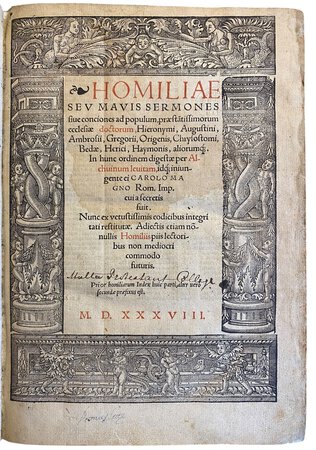 HOMILIAE
SEV MAVIS SERMONES
siue conciones ad populum, præstãtissimorum
ecclesiæ doctorum, Hieronymi, Augustini,
Ambrosii, Gregorii, Origenis, Chrysostomi,
Bedæ, Herici, Haymonis, aliorumq;.
In hunc ordinem digestæ per Al-
chuinum leuitam, idq; iniun-
gente ei CAROLO MA
GNO Rom. Imp.
cui a secretis
fuit.
Nunc ex vetustissimis codicibus integri
tati restitutæ. Adiectis etiam nõ-
nullis Homiliis piis lectori-
bus non mediocri
commodo
futuris.
College
Prior homiliarum Index huic parti, alter vero
secundæ præfixus est.
M. D. XXXVIII.